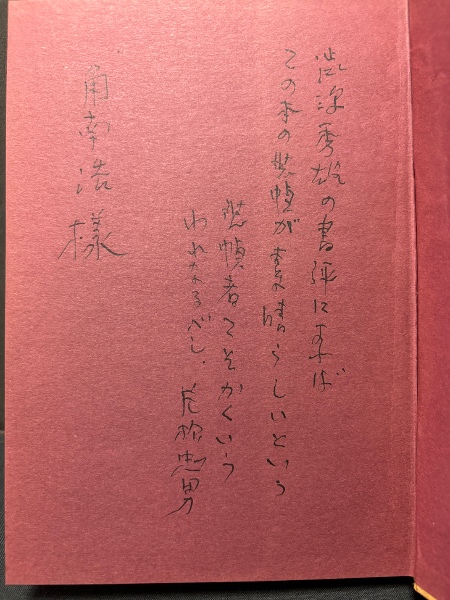 渋沢秀雄の書評によれば
この本の装幀が素晴らしいという
装幀者こそかくいう
われなるべし. 片柳忠男
角南浩様